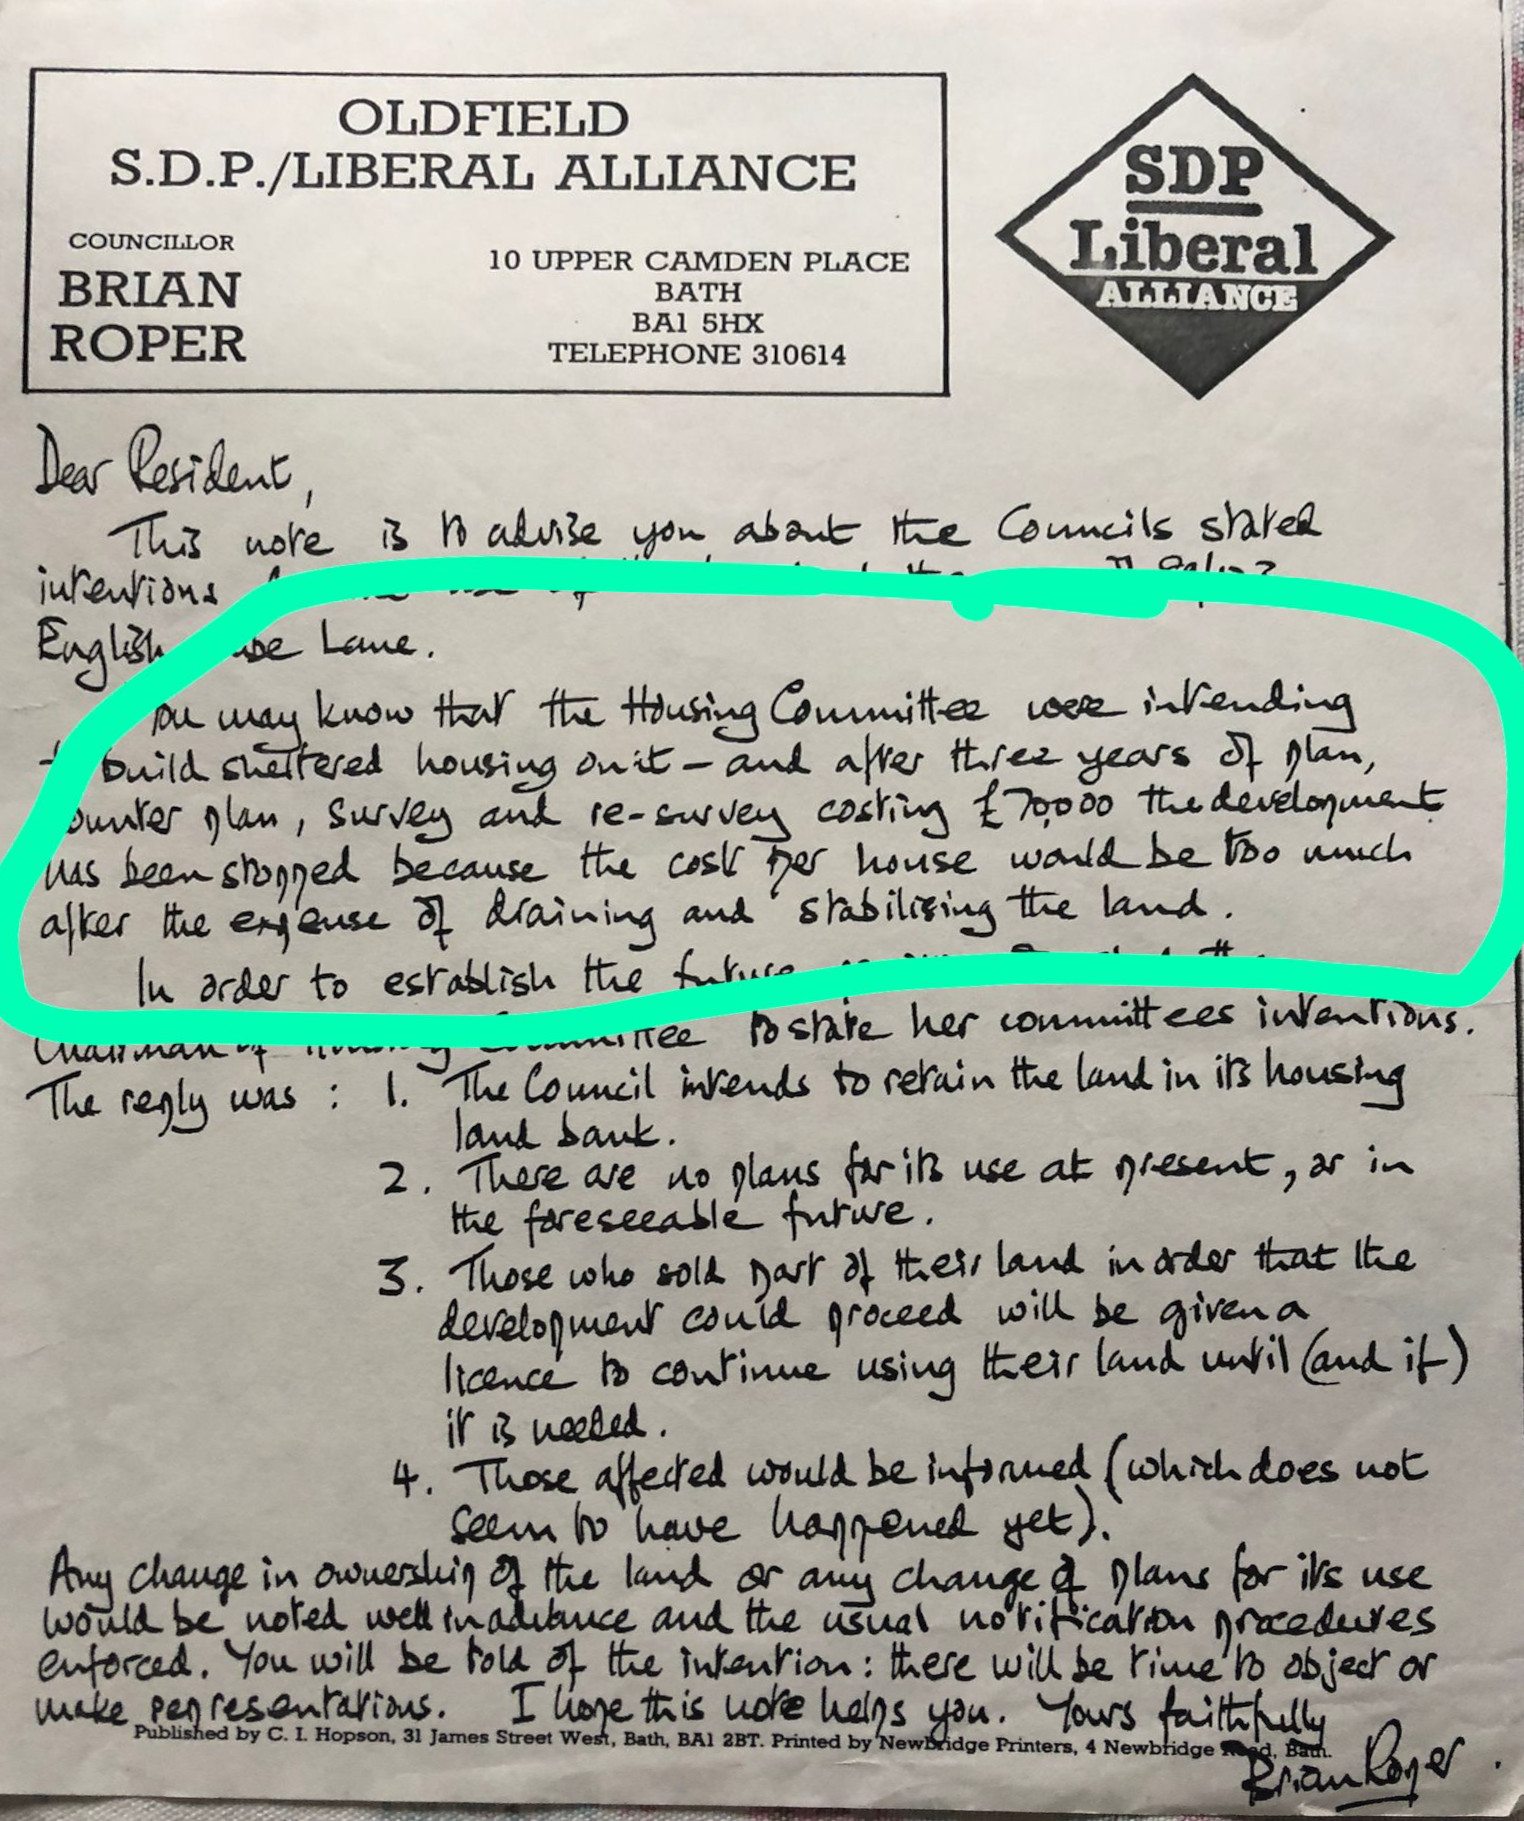 OLDFIELD
S.D.P./LIBERAL ALLIANCE
COUNCILLOR
BRIAN
ROPER
10 UPPER CAMDEN PLACE
BATH
BA1 5HX
TELEPHONE 310614
SDP
Liberal
ALLIANCE
Dear Resident,
This note is to advise you about the Councils stated
intentions
English Lane.
may know that the Housing Committee were intending
build sheltered housing on it – and after three years of plan,
counter plan, survey and re-survey costing £70,000 the development
has been stopped because the cost per house would be too much
after the expense of draining and stabilising the land.
In order to establish the future
Chairman of Housing Committee to state her committees intentions.
The reply was : 1. The Council intends to retain the land in its housing
land bank.
2. There are no plans for its use at present, or in
the foreseeable future.
3. Those who sold part of their land in order that the
development could proceed will be given a
licence to continue using their land until (and if)
it is needed.
4. Those affected would be informed (which does not
seem to have happened yet).
Any change in ownership of the land or any change of plans for its use
would be noted well in advance and the usual notification procedures
enforced. You will be told of the intention: there will be time to object or
make representations. I hope this note helps you. Yours faithfully
Published by C. I. Hopson, 31 James Street West, Bath, BA1 2BT. Printed by Newbridge Printers, 4 Newbridge Road, Bath.
Brian Roper